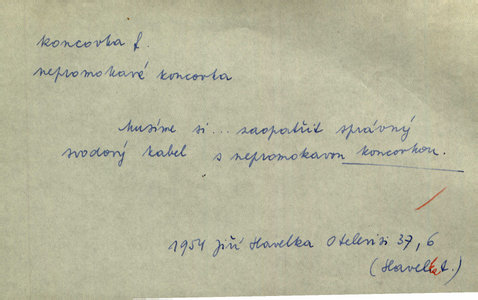 koncovka f.
nepromokavé koncovka
Musíme si... zaopatřit správný
svodový kabel s nepromokavou koncovkou.
1954 Jiří Havelka O televisi 37, 6
(Havelka t.)